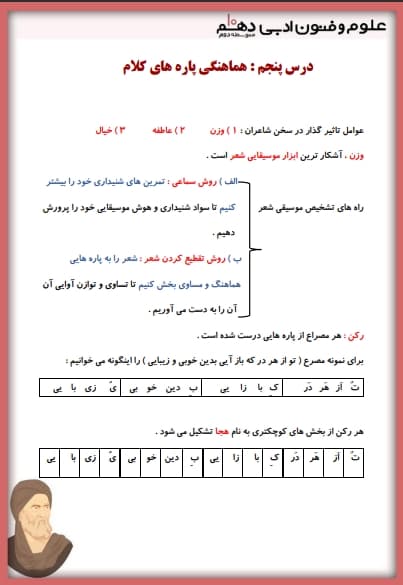 علوم و فنون ادبی دهم
متوسطه دوم
درس پنجم : هماهنگی پاره های کلام
عوامل تاثیر گذار در سخن شاعران : ۱ ) وزن ۲ ) عاطفه ۳ ) خیال
وزن ، آشکار ترین ابزار موسیقایی شعر است .
راه های تشخیص موسیقی شعر
الف ) روش سماعی : تمرین های شنیداری خود را بیشتر
کنیم تا سواد شنیداری و هوش موسیقایی خود را پرورش
دهیم .
ب ) روش تقطیع کردن شعر : شعر را به پاره هایی
هماهنگ و مساوی بخش کنیم تا تساوی و توازن آوایی آن
آن را به دست می آوریم .
رکن : هر مصراع از پاره هایی درست شده است .
برای نمونه مصرع ( تو از هر در که باز آیی بدین خوبی و زیبایی ) را اینگونه می خوانیم :
تُ اَز هَر دَر کِ با زا یی بِ دین خو بی یُ زی با یی
هر رکن از بخش های کوچکتری به نام هجا تشکیل می شود .
تُ اَز هَر دَر کِ با زا یی بِ دین خو بی یُ زی با یی